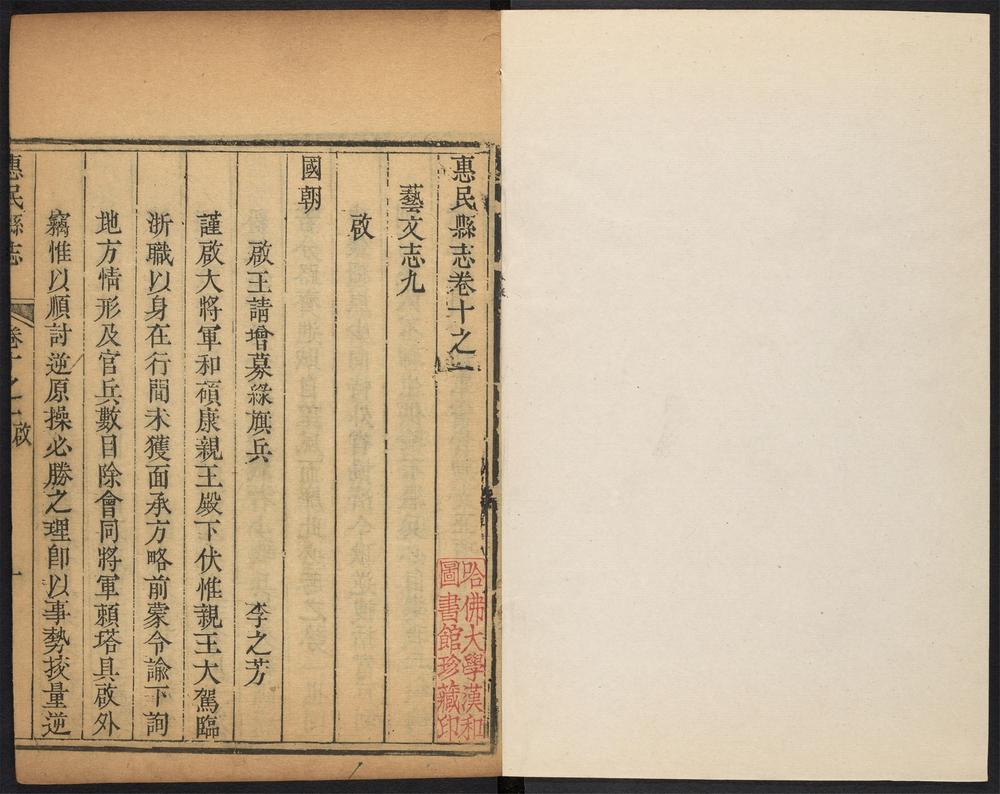 惠民縣志卷十之一
藝文志九
啟
國朝
啟王請增募綠旗兵 李之芳
謹啟大將軍和碩康親王殿下伏惟親王大駕臨
浙職以身在行間未獲面承方略前蒙令諭下詢
地方情形及官兵數目除會同將軍賴塔具啟外
竊惟以順討逆原操必勝之理卽以事勢挍量逆
惠民縣志 卷十之一 啟 一
哈佛大學漢和
圖書館珍藏印